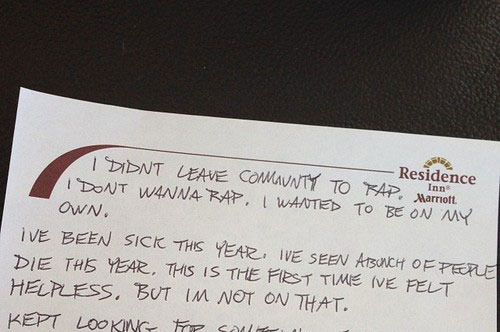 Residence
Inn®
Marriott
I DIDNT LEAVE COMMUNTY TO RAP.
I DONT WANNA RAP. I WANTED TO BE ON MY
OWN.
IVE BEEN SICK THIS YEAR. IVE SEEN ABUNCH OF PEOPLE
DIE THIS YEAR. THIS IS THE FIRST TIME IVE FELT
HELPLESS. BUT IM NOT ON THAT.
KEPT LOOKING FOR